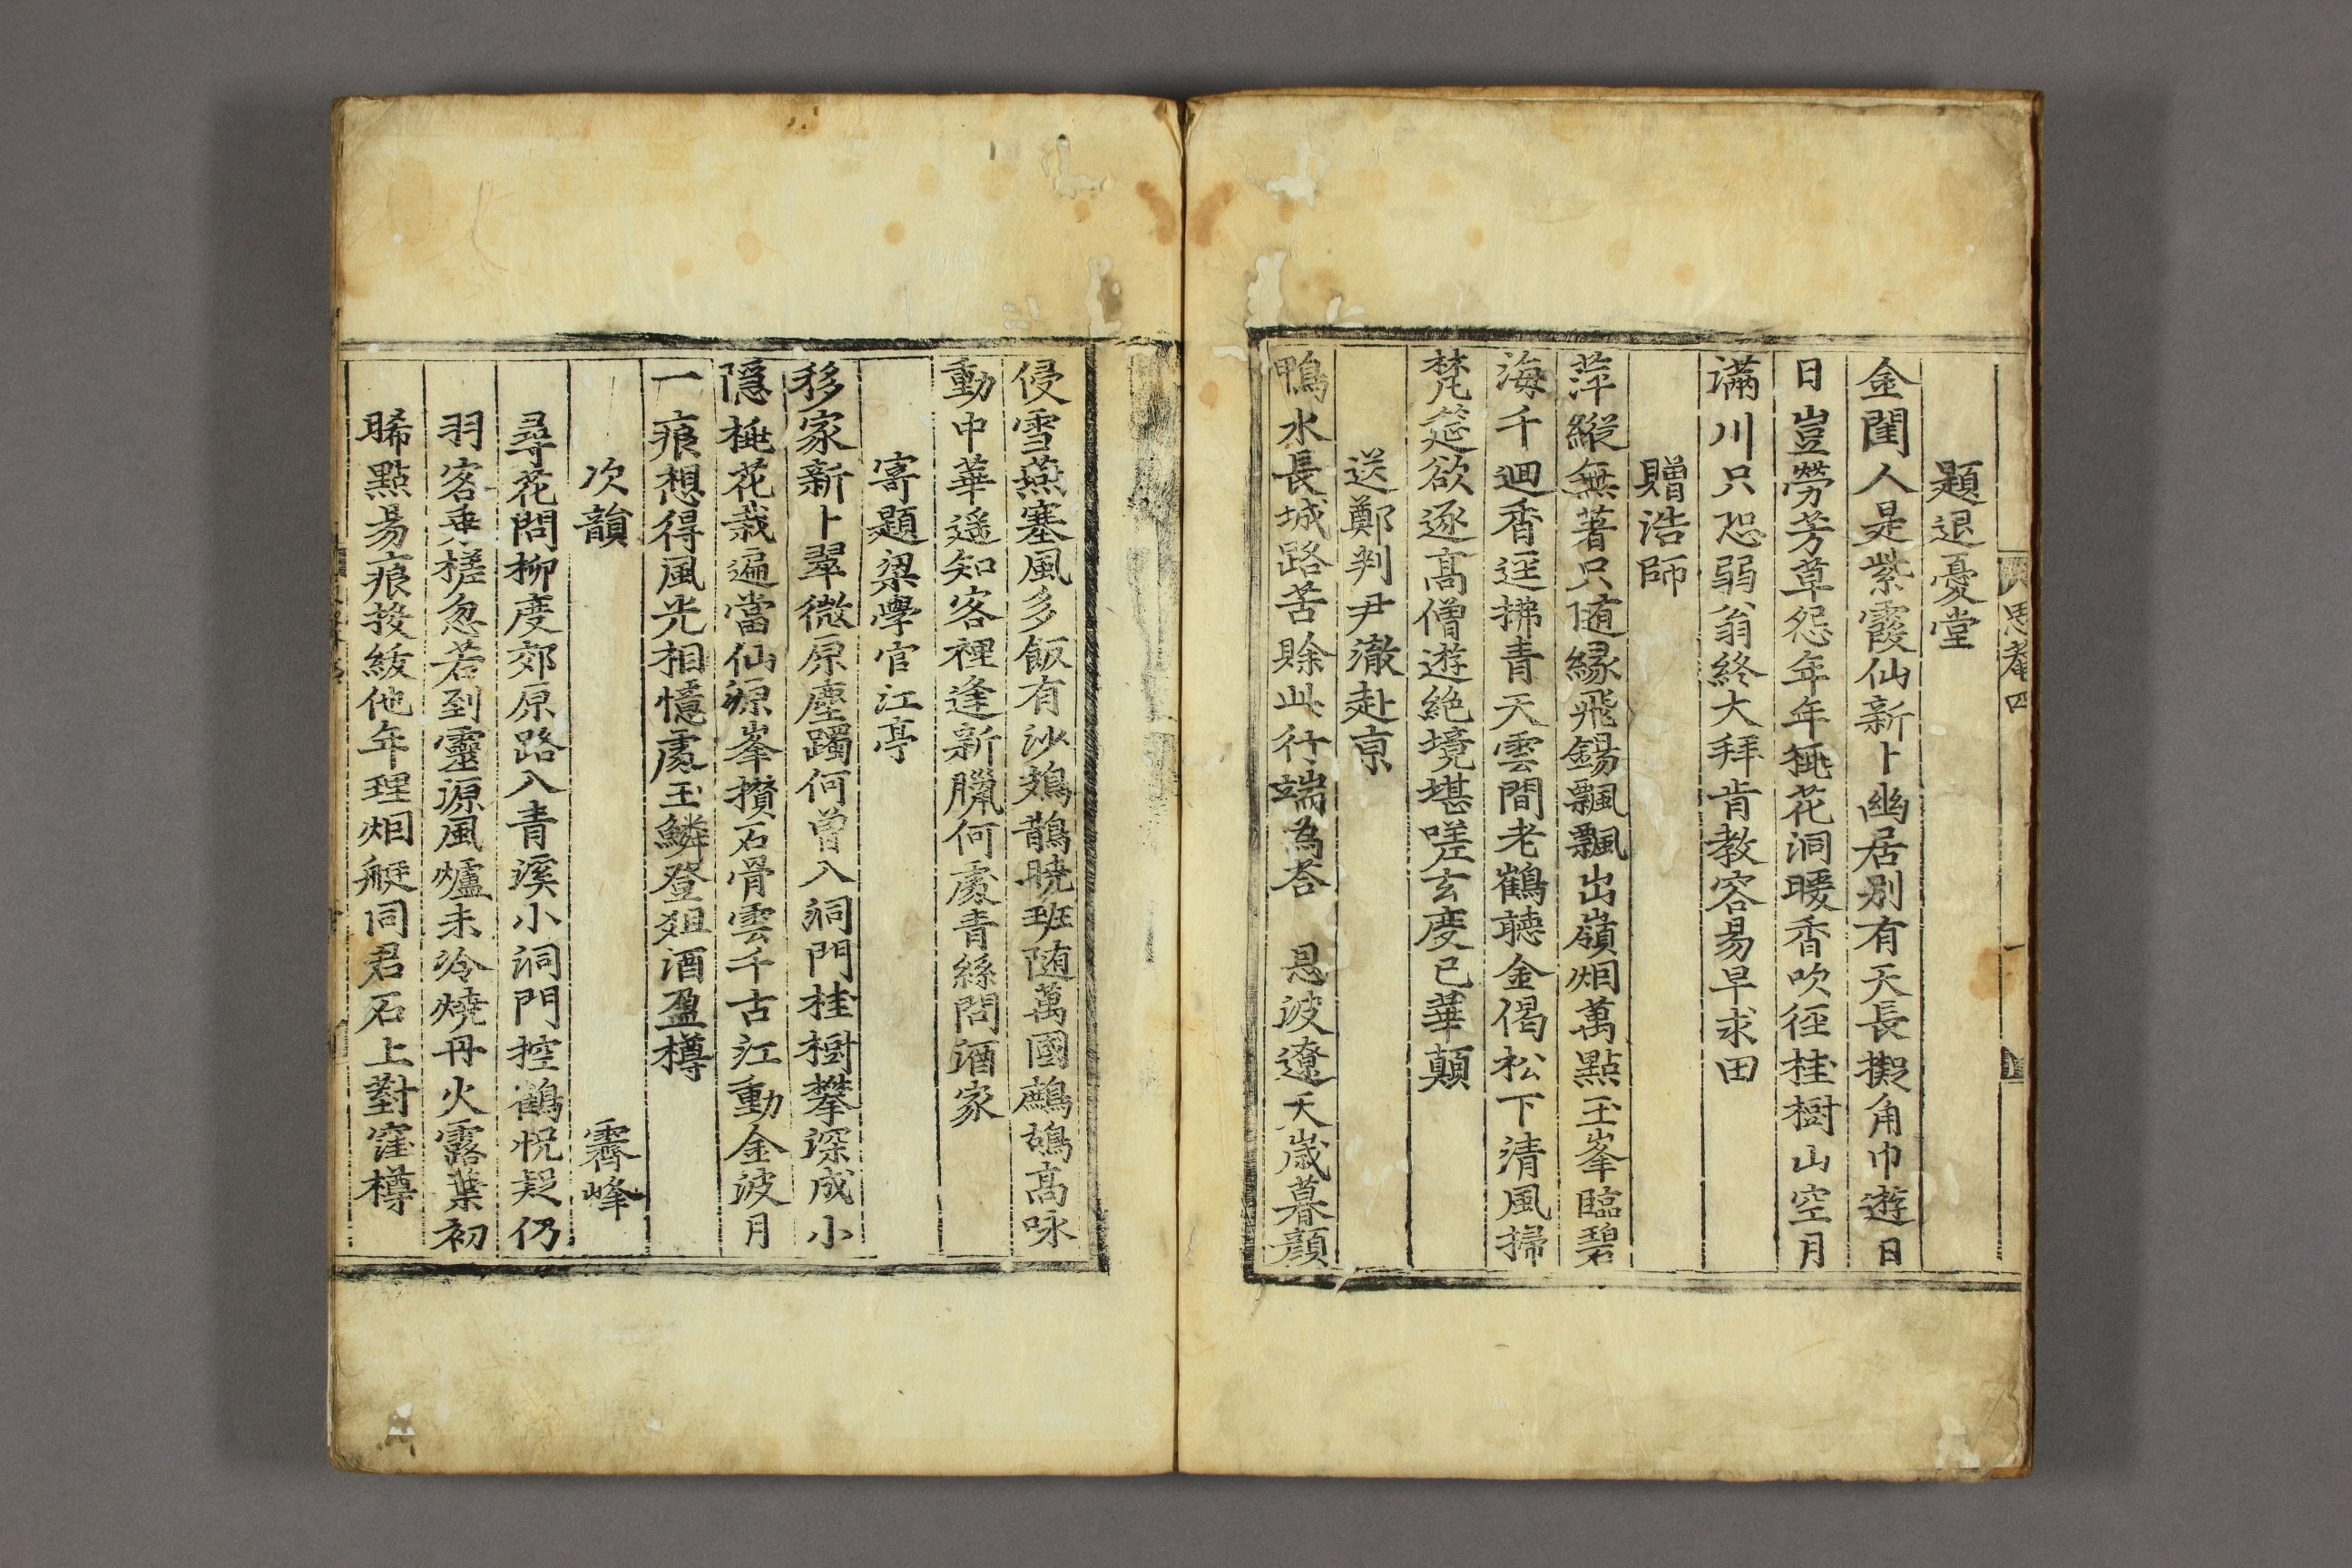 思菴四
題退憂堂
金閨人是紫霞仙新卜幽居別有天長擬角巾遊日
日豈勞芳草怨年年桃花洞暖香吹徑桂樹山空月
滿川只恐弱翁終大拜肯教容易早求田
贈浩師
萍縱無著只随緣飛錫飄飄出嶺烟萬點玉峯臨碧
海千迴香逕拂青天雲間老鶴聽金偈松下清風掃
梵筵欲逐高僧遊絶境堪嗟玄度已華顛
送鄭判尹澈赴京
鴨水長城路苦賖此行端為荅 恩波遼天歲暮顔
侵雪燕塞風多飯有沙鳷鵲曉班随萬國鷓鴣高咏
動中華遥知客裡逢新臘何處青絲問酒家
寄題梁學官江亭
移家新卜翠微原塵躅何曾入洞門桂樹攀深成小
隱桃花栽遍當仙源峯攅石骨雲千古江動金波月
一痕想得風光相憶處玉鱗登俎酒盈樽
次韻 霽峰
尋花問柳度郊原路入青溪小洞門控鶴怳疑仍
羽客乘槎忽若到靈源風爐未冷燒丹火露葉初
晞點易痕投紱他年理烟艇同君石上對窪樽